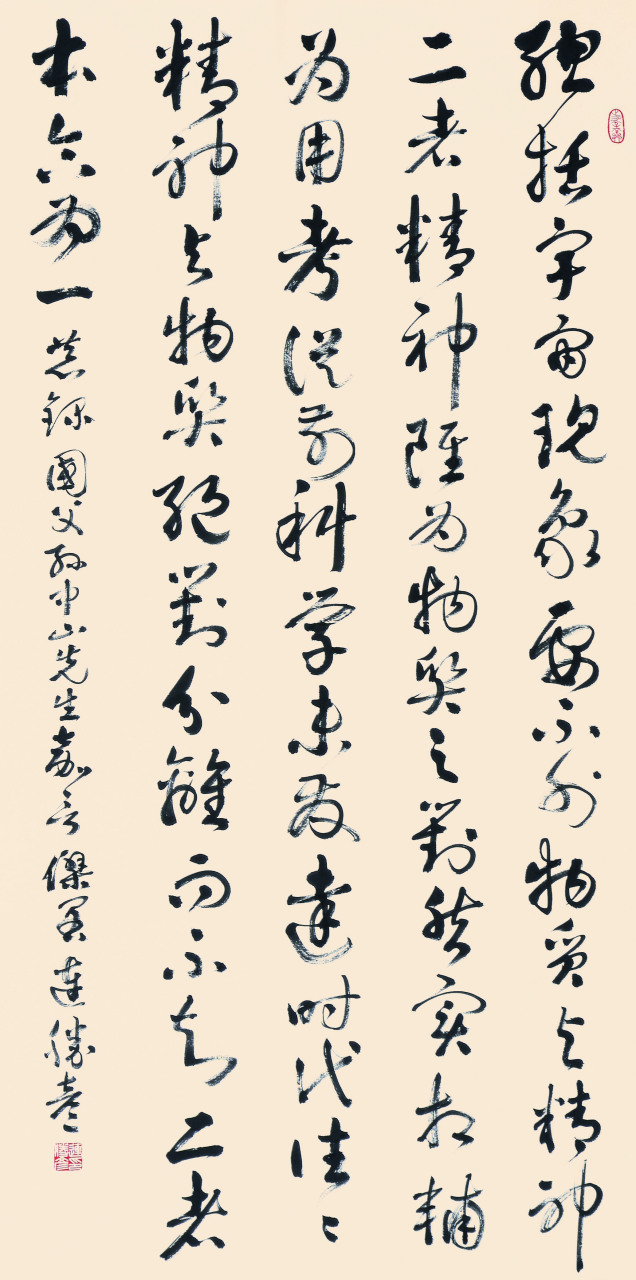 總括宇宙現象要不外物質与精神
二者精神雖為物質之對然實相輔
為用考從前科学未發達時代往々
精神与物質絕對分離而不知二者
本合為一 恭錄國父孫中山先生嘉言 傑閣連勝彥